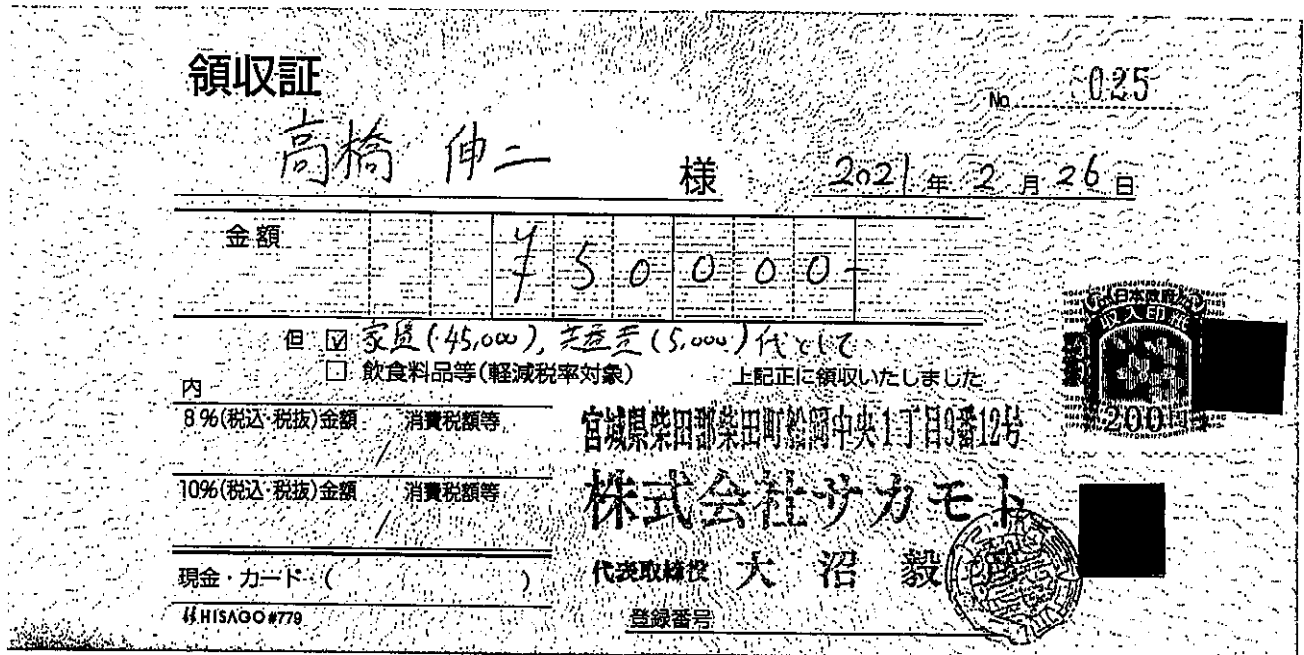 領収証
No. 025
高橋 伸二 様
2021年2月26日
金額 ¥50000-
但 ☑ 家賃(45,000), 共益費(5,000)代として
□ 飲食料品等(軽減税率対象)
上記正に領収いたしました
内
8%(税込・税抜)金額 消費税額等
/
10%(税込・税抜)金額 消費税額等
/
現金・カード ( )
HISAGO #779
日本政府
収入印紙
200円
宮城県柴田郡柴田町船岡中央1丁目9番12号
株式会社サカモト
代表取締役 大沼毅
登録番号